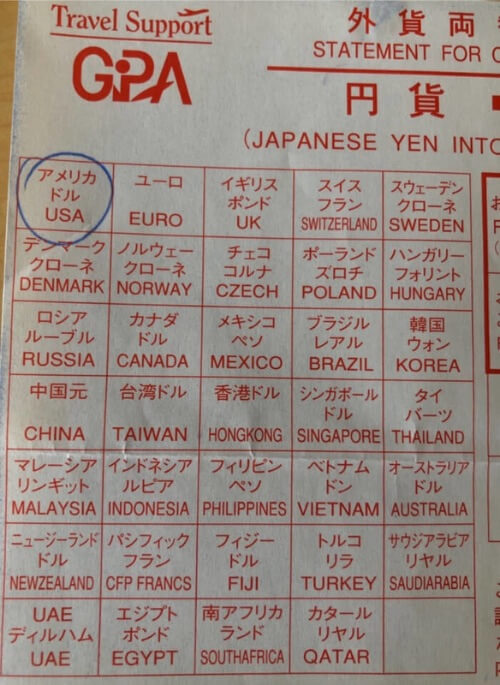 Travel Support
GPA
外貨両
STATEMENT FOR
円貨
(JAPANESE YEN INTO
アメリカ
ドル
USA
ユーロ
EURO
イギリス
ポンド
UK
スイス
フラン
SWITZERLAND
スウェーデン
クローネ
SWEDEN
デンマーク
クローネ
DENMARK
ノルウェー
クローネ
NORWAY
チェコ
コルナ
CZECH
ポーランド
ズロチ
POLAND
ハンガリー
フォリント
HUNGARY
ロシア
ルーブル
RUSSIA
カナダ
ドル
CANADA
メキシコ
ペソ
MEXICO
ブラジル
レアル
BRAZIL
韓国
ウォン
KOREA
中国元
CHINA
台湾ドル
TAIWAN
香港ドル
HONGKONG
シンガポール
ドル
SINGAPORE
タイ
バーツ
THAILAND
マレーシア
リンギット
MALAYSIA
インドネシア
ルピア
INDONESIA
フィリピン
ペソ
PHILIPPINES
ベトナム
ドン
VIETNAM
オーストラリア
ドル
AUSTRALIA
ニュージーランド
ドル
NEWZEALAND
パシフィック
フラン
CFP FRANCS
フィジー
ドル
FIJI
トルコ
リラ
TURKEY
サウジアラビア
リヤル
SAUDIARABIA
UAE
ディルハム
UAE
エジプト
ポンド
EGYPT
南アフリカ
ランド
SOUTHAFRICA
カタール
リヤル
QATAR